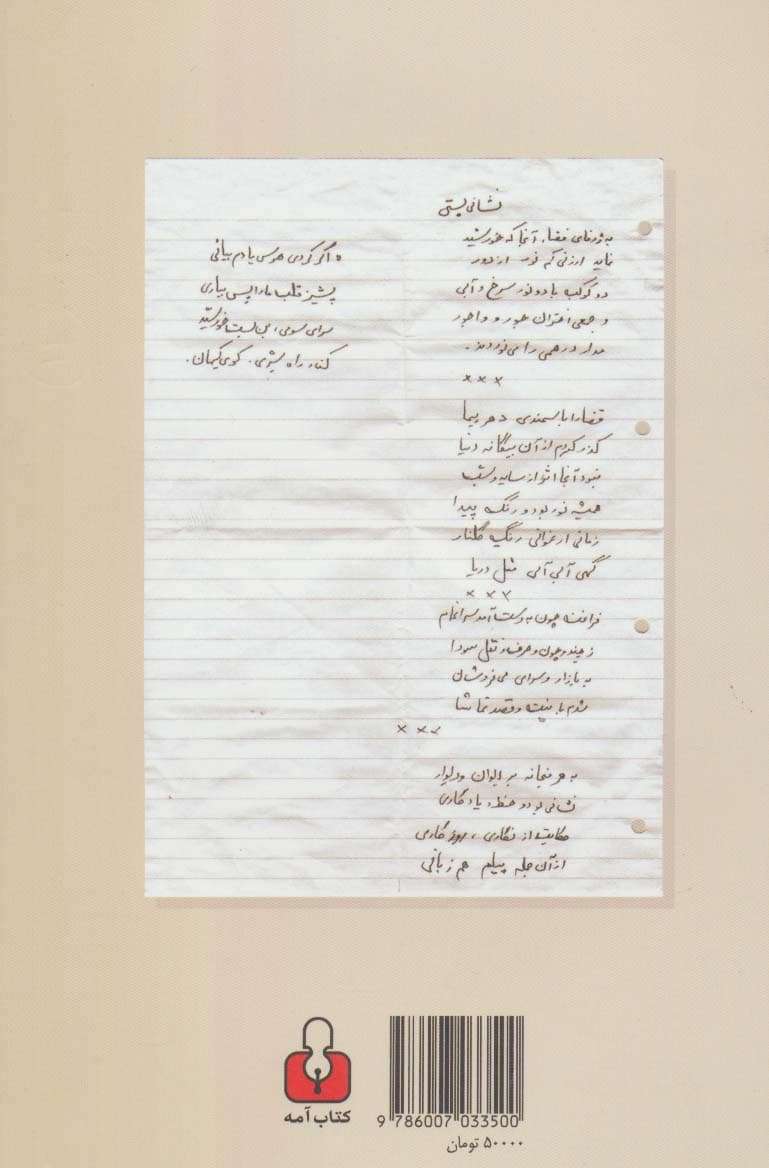 نشانی پستی
به ژرفای فضا، آنجا که خورشید
نماید ارزنی کم نور از دور
دو کوکب با دو نور سرخ و آبی
و جمعی اختران جور و واجور
مدار درهمی را می نوردند.
×××
فضا را با سمندی دهر پیما
گذر کردم از آن بیگانه دنیا
نبود آنجا اثر از سایه و شب
همیشه نور بود و رنگ پیدا
زمانی ارغوانی رنگ گلنار
گهی آبی آبی مثل دریا
×××
فراغت چون به دست آمد سرانجام
ز چند و چون و حرف و نقل سودا
به بازار و سرای می فروشان
شدم با نیت و قصد تماشا
×××
به هر میخانه بر ایوان و دیوار
نشانی بود و خط یادگاری
حکایت از نگاری، روزگاری
از آن جمله پیام هم زبانی
اگر کردی هوس یادم بیائی
پشیز قلب ما را پس بیاری
سرای سوم، بن بست خورشید
کنار راه شیری. کوی کیهان.
کتاب آمه
9 786007 033500
۵۰۰۰۰ تومان